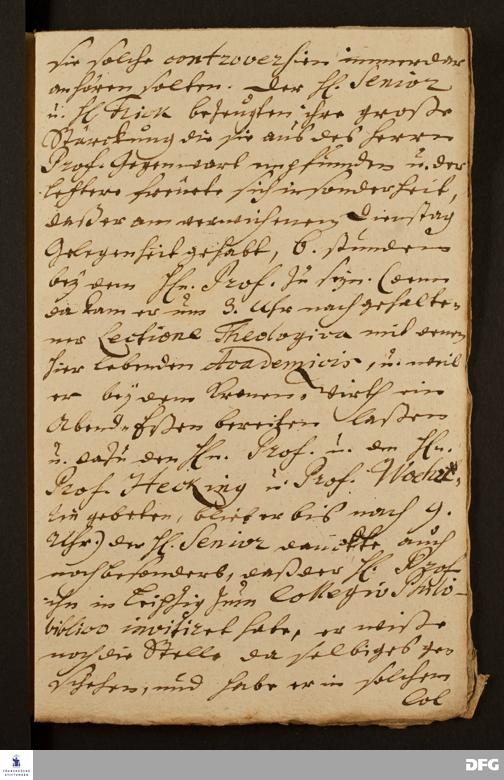 sie solche controversien immerdar
anhören solten. Der H. Senior
u. H. Frick bezeugten ihre große
Stärckung die sie aus des Herrn
Prof. Gegenwart empfunden u. der
letztere freuete sich insonderheit,
daß er am verwichenen Dienstag
Gelegenheit gehabt, 6. stunden
bey dem Hn. Prof. zu seyn. (denn
da kam er um 3. Uhr nach gehalte-
ner Lectione Theologica mit denen
hier lebenden Academicis, u. weil
er bey dem Kronen-Wirth ein
Abend-Essen bereiten laßen
u. dazu den Hn. Prof. u. den Hn.
Prof. Hecking u. Prof. Wochel-
gebeten, blieb er bis nach 9.
Uhr) der H. Senior danckte auch
noch besonders, daß der H. Prof.
ihn in Leipzig zum Collegio Philo-
biblico invitiret habe, er wiße
noch die Stelle da selbiges ge-
schehen, und habe er in solchem
Col
FRANCKESCHE
STIFTUNGEN
DFG